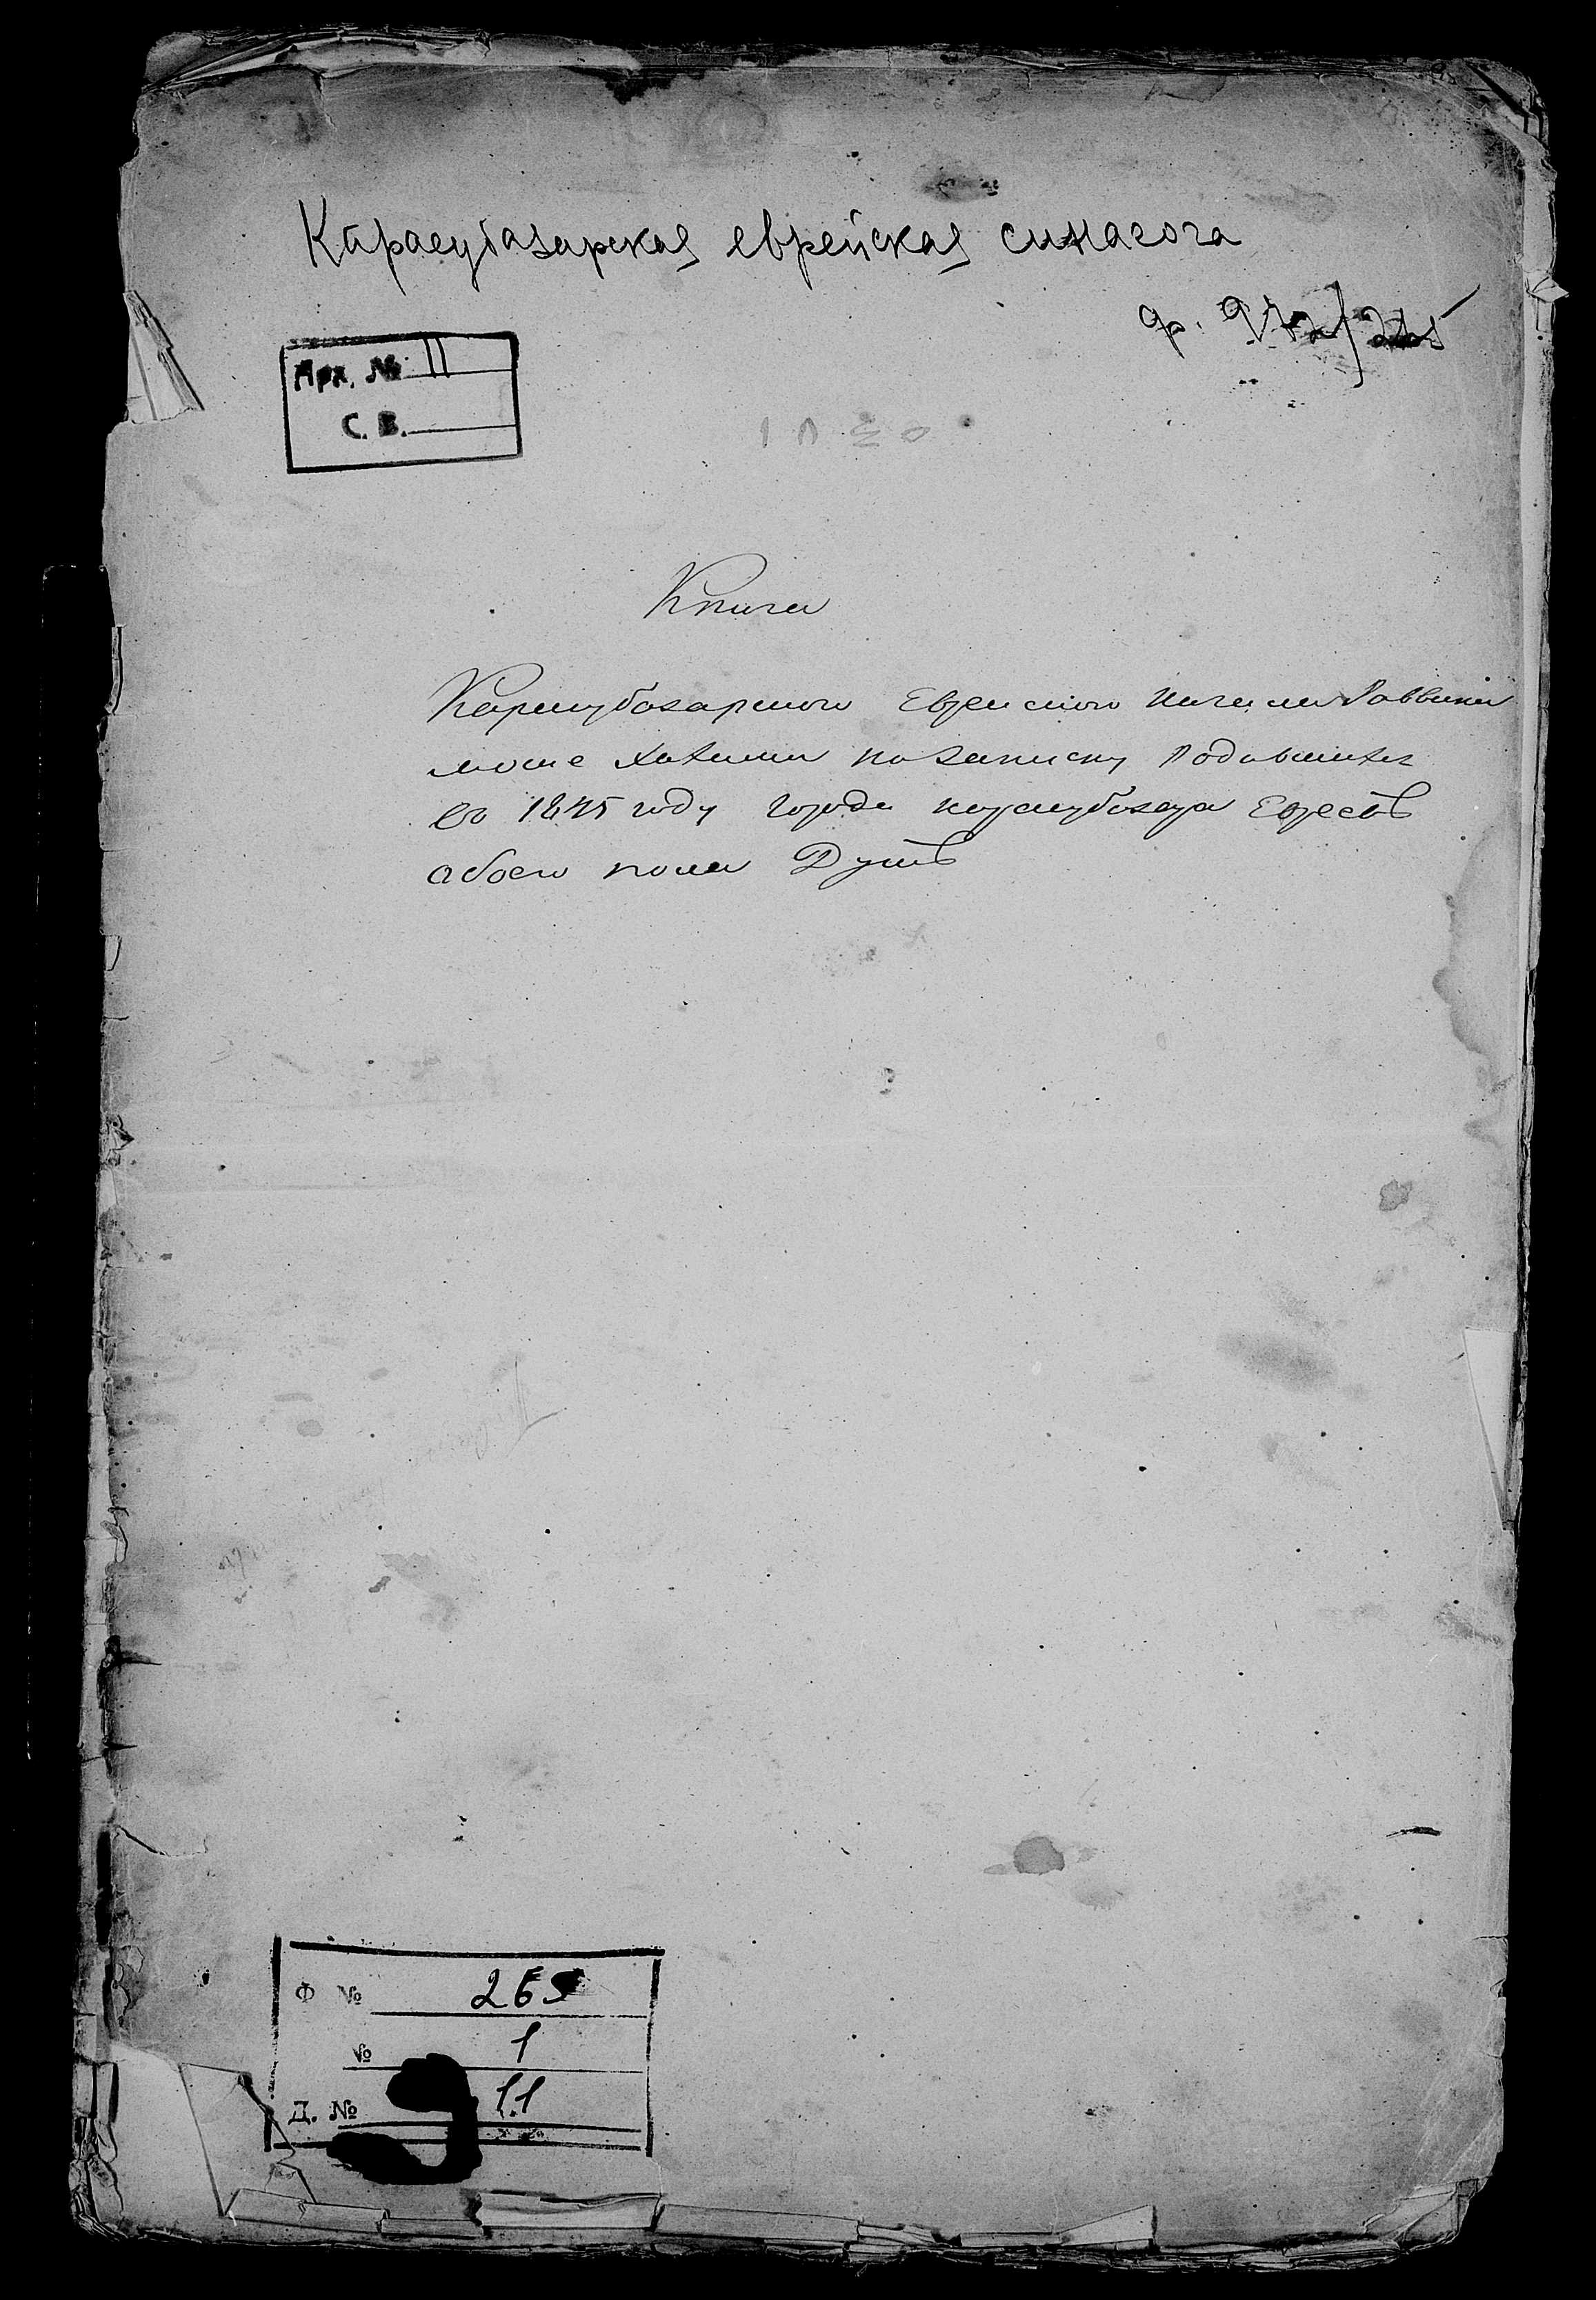 Карасубазарская еврейская синагога
ф. 972/
Арх. № 11
С. В.
Книга
Карасубазарского Еврейского Раввина
позаписку Родившихся
во 1845 году города карасубазара Евреевъ
обоего пола Душъ
Ф №  265
№ 1
Д. № 11